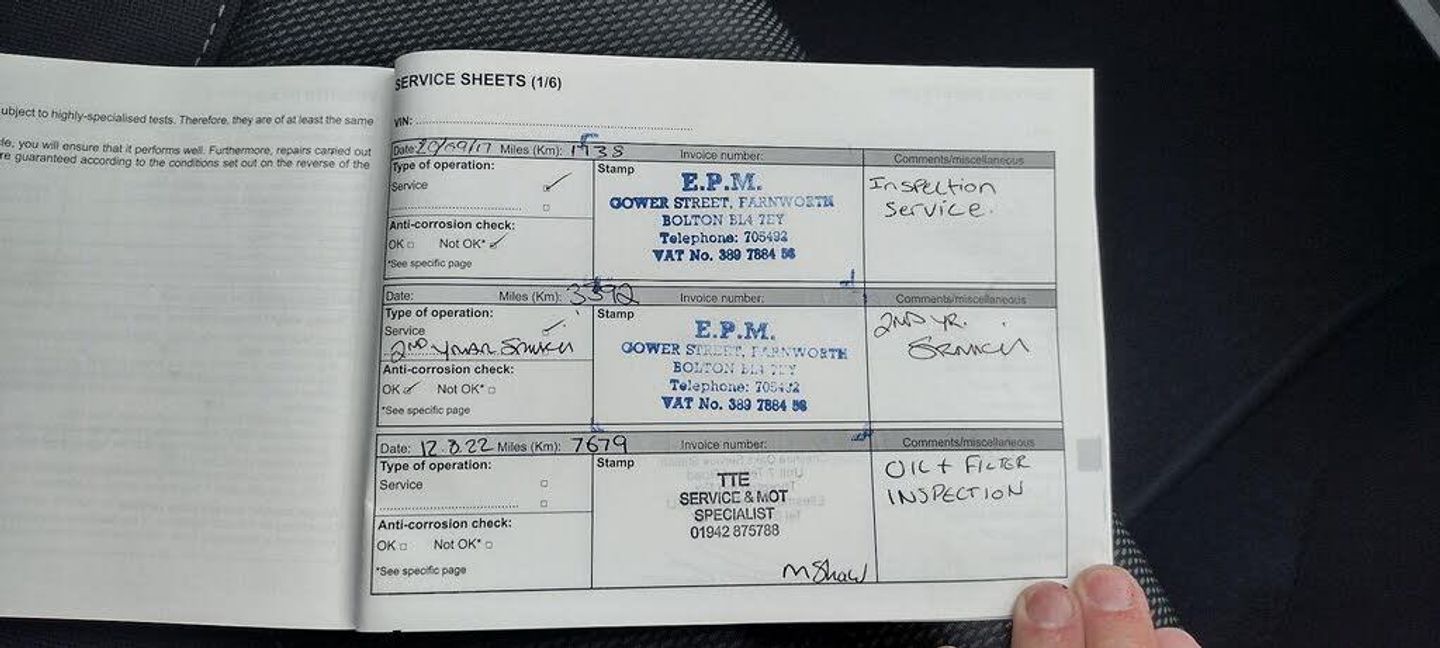 ubject to highly-specialised tests. Therefore, they are of at least the same
le, you will ensure that it performs well. Furthermore, repairs carried out
re guaranteed according to the conditions set out on the reverse of the
SERVICE SHEETS (1/6)
VIN:
Date: 20/09/17 Miles (Km): 1938 Invoice number: Comments/miscellaneous
Type of operation:
Service
Anti-corrosion check:
OK Not OK*
*See specific page
Stamp
E.P.M.
GOWER STREET, FARNWORTH
BOLTON BL4 7EY
Telephone: 705432
VAT No. 389 7884 56
Inspection
Service.
Date: Miles (Km): 3392 Invoice number: Comments/miscellaneous
Type of operation:
Service
2ND YEAR SERVICE
Anti-corrosion check:
OK Not OK*
*See specific page
Stamp
E.P.M.
GOWER STREET, FARNWORTH
BOLTON BL4 7EY
Telephone: 705432
VAT No. 389 7884 56
2ND YR.
SERVICE
Date: 12.8.22 Miles (Km): 7679 Invoice number: Comments/miscellaneous
Type of operation:
Service
Anti-corrosion check:
OK Not OK*
*See specific page
Stamp
TTE
SERVICE & MOT
SPECIALIST
01942 875788
M Shaw
OIL + FILTER
INSPECTION